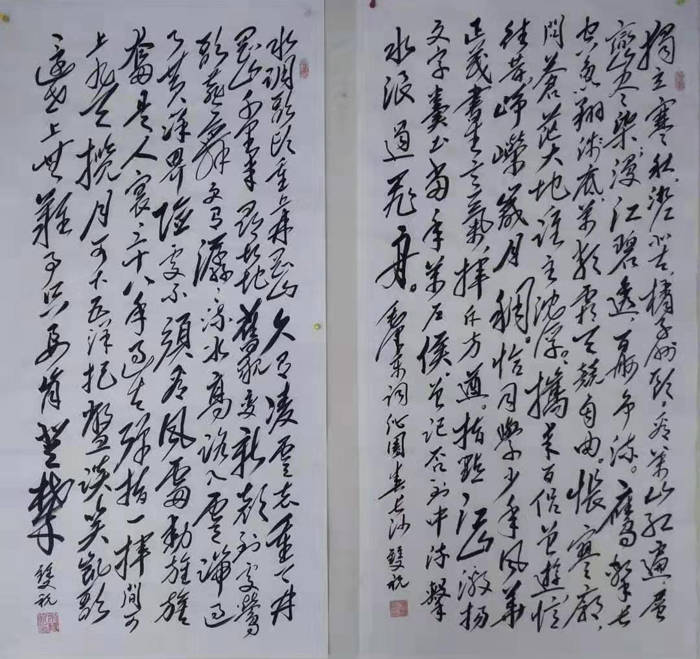 独立寒秋湘江北去橘子洲头看万山红遍层
峦尽染漫江碧透百舸争流。鹰击长
空鱼翔浅底万类霜天竞自由。怅寥廓，
问苍茫大地谁主沉浮。携来百侣曾游忆
往昔峥嵘岁月稠。恰同学少年风华
正茂书生意气挥斥方遒。指点江山激扬
文字粪土当年万户侯曾记否到中流击
水浪遏飞舟。毛泽东词沁园春长沙 雙祝
水调歌头重上井冈山 久有凌云志重上井
冈山千里来寻故地舊貌变新颜到处莺
歌燕舞更有潺潺流水高路入云端过
了黄洋界险处不须看风雷动旌旗
奋是人寰三十八年过去弹指一挥间可
上九天揽月可下五洋捉鳖谈笑凯歌
还世上无难事只要肯登攀 雙祝